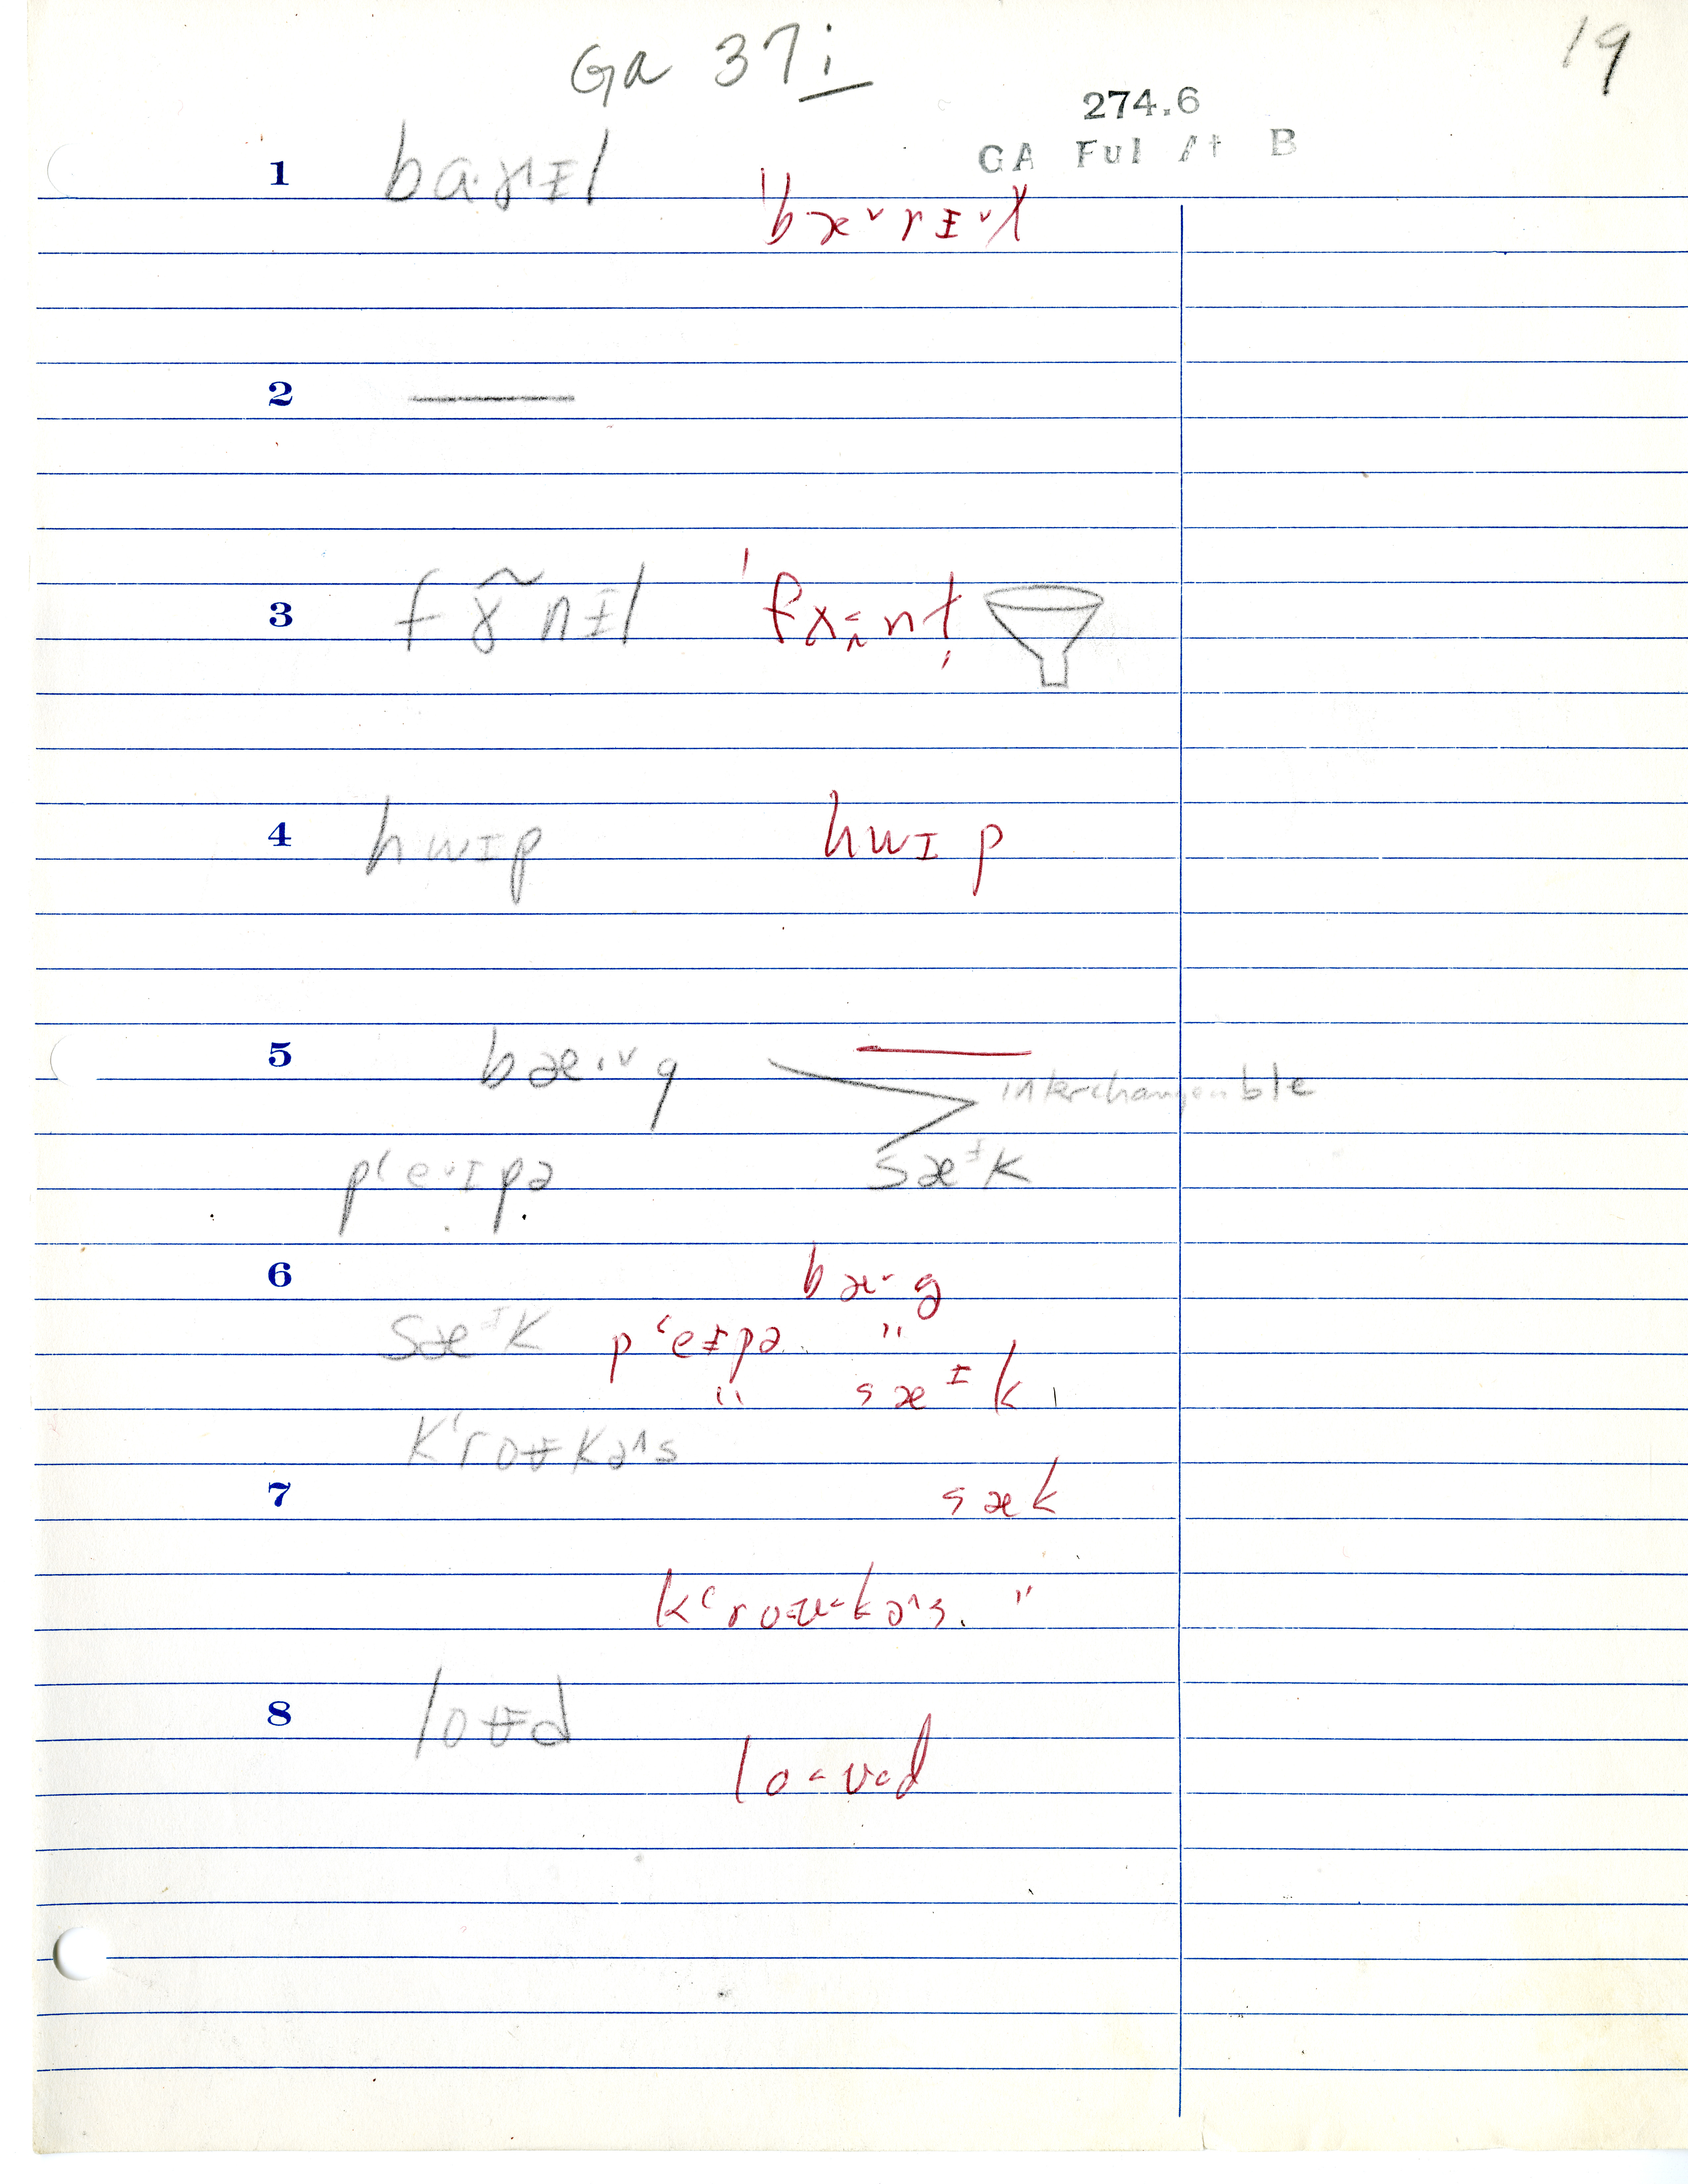 Ga 37i
19
274.6
GA Ful At B
1 ba.rɪ̵l
ˈbæ˅rɪ̵˅l
2 —
3 fɤ̃nɪ̵l
4 hwɪp hwɪp
5 bæ.˅g —
interchangeable
p‘e˅ɪpə sæᵻk
6 bæ˅g
sæᵻk p‘eɪ̵pə "
" sæᵻk
k‘roʊ̵kə˄s
7 sæk
k‘ro<ʊ<kə˄s. "
8 loʊ̵d
lo<ʊ<d